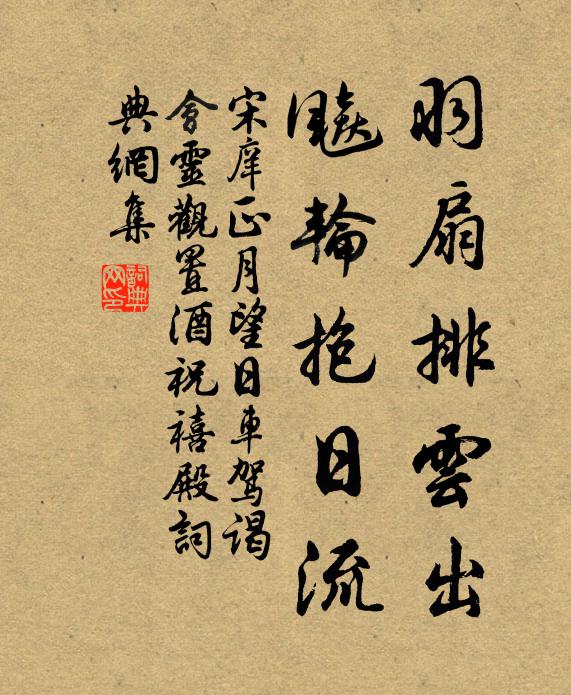 羽扇排雲出
飇輪抱日流
宋庠正月望日車駕謁
會靈觀置酒祝禧殿詞
典網集
詞典網印